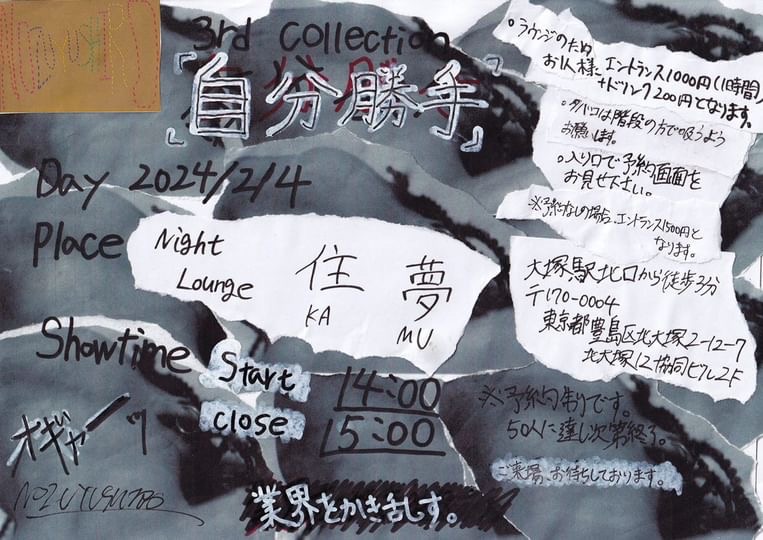 3rd collection
「自分勝手」
Day 2024/2/4
Place
Night
Lounge
住 夢
KA
MU
Showtime
Start 14:00
close 15:00
オギャーッ
業界をかき乱す。
。ラウンジのため
お1人様に エントランス1000円(1時間)
+ドリンク200円となります。
。タバコは階段の方で吸うよう
お願いします。
。入り口で予約画面を
お見せ下さい。
※予約なしの場合、エントランス1500円と
なります。
大塚駅北口から徒歩3分
〒170-0004
東京都豊島区北大塚2-12-7
北大塚12協同ビル2F
※予約制りです。
50人に達し次第終了。
ご来場、お待ちしております。